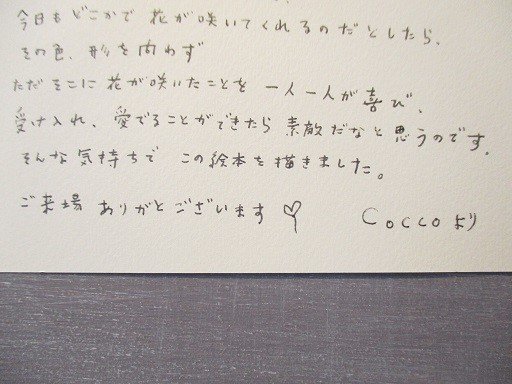 今日も どこかで 花が咲いてくれるのだとしたら、
その色、形を問わず
ただ そこに 花が咲いたことを 一人一人が 喜び、
受け入れ、愛でることができたら 素敵だなと思うのです。
そんな気持ちで この絵本を描きました。
ご来場 ありがとございます COCCOより